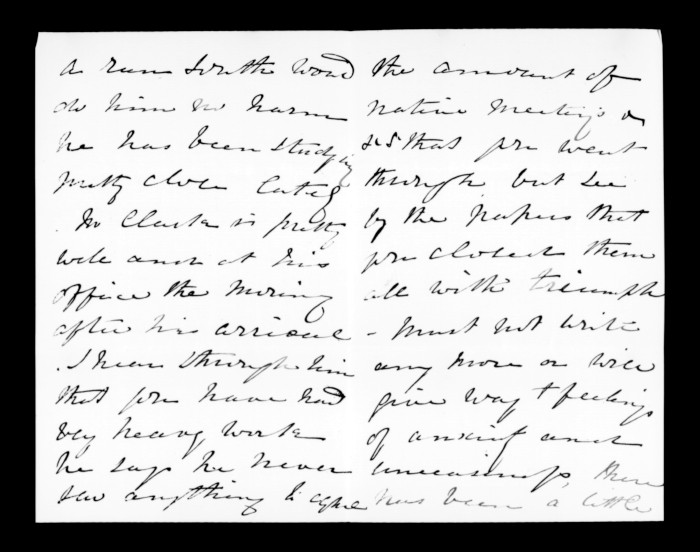 a run South would
do him no harm
he has been studying
pretty close lately
. Mr Clarke is pretty
well and at his
office the morning
after his arrival
. I hear through him
that you have had
very heavy work
he says he never
saw anything to equal
the amount of
native meetings
&cs that you went
through, but see
by the papers that
you closed them
all with triumph
- Must not write
any more or will
give way to feelings
of and
uneasiness, there
has been a little